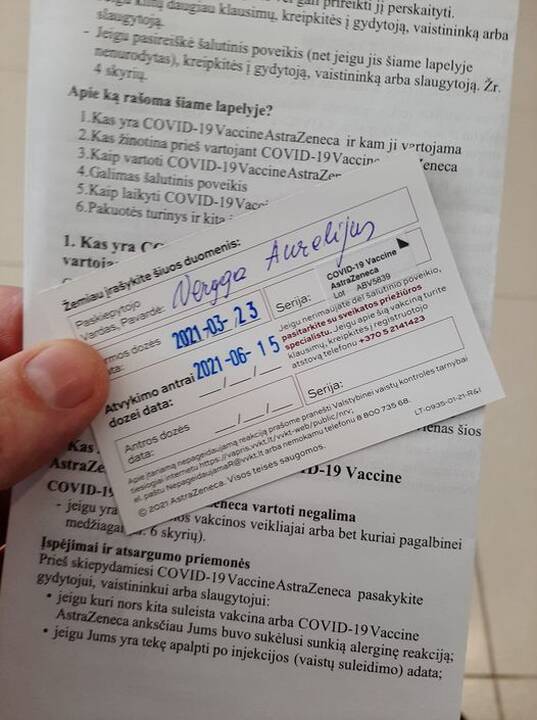 daugiau klausimų, kreipkitės į gydytoją, vaistininką arba
slaugytoją.
- Jeigu pasireiškė šalutinis poveikis (net jeigu jis šiame lapelyje
nenurodytas), kreipkitės į gydytoją, vaistininką arba slaugytoją. Žr.
4 skyrių.
Apie ką rašoma šiame lapelyje?
1.Kas yra COVID-19 Vaccine AstraZeneca ir kam ji vartojama
2.Kas žinotina prieš vartojant COVID-19 Vaccine
3.Kaip vartoti COVID-19 Vaccine
4.Galimas šalutinis poveikis
5.Kaip laikyti COVID-19
6.Pakuotės turinys ir kita
1. Kas yra
Žemiau įrašykite šiuos duomenis:
Paskiepytojo
Vardas, Pavardė: Aurelijus
2021-03-23
Serija:
COVID-19 Vaccine
AstraZeneca
Lot ABV5839
Atvykimo antrai
dozei data:
2021-06-15
Jeigu nerimaujate dėl šalutinio poveikio,
pasitarkite su sveikatos priežiūros
specialistu. Jeigu apie šią vakciną turite
klausimų, kreipkitės į registruotojo
atstovą telefonu +370 5 2141423
Antros dozės
data: __/__/__
Serija:
Apie įtariamą nepageidaujamą reakciją prašome pranešti Valstybinei vaistų kontrolės tarnybai
tiesiogiai internetu https://vapris.vvkt.lt/vvkt-web/public/nrv;
el. paštu NepageidaujamaR@vvkt.lt arba nemokamu telefonu 8 800 735 68.
© 2021 AstraZeneca. Visos teisės saugomos.
LT-0935-01-21-R&I
šios
Kas
-19 Vaccine
vartoti negalima
- jeigu yra vakcinos veikliajai arba bet kuriai pagalbinei
6 skyrių).
Įspėjimai ir atsargumo priemonės
Prieš skiepydamiesi COVID-19 Vaccine AstraZeneca pasakykite
gydytojui, vaistininkui arba slaugytojui:
• jeigu kuri nors kita suleista vakcina arba COVID-19 Vaccine
AstraZeneca anksčiau Jums buvo sukėlusi sunkią alerginę reakciją;
• jeigu Jums yra tekę apalpti po injekcijos (vaistų suleidimo) adata;